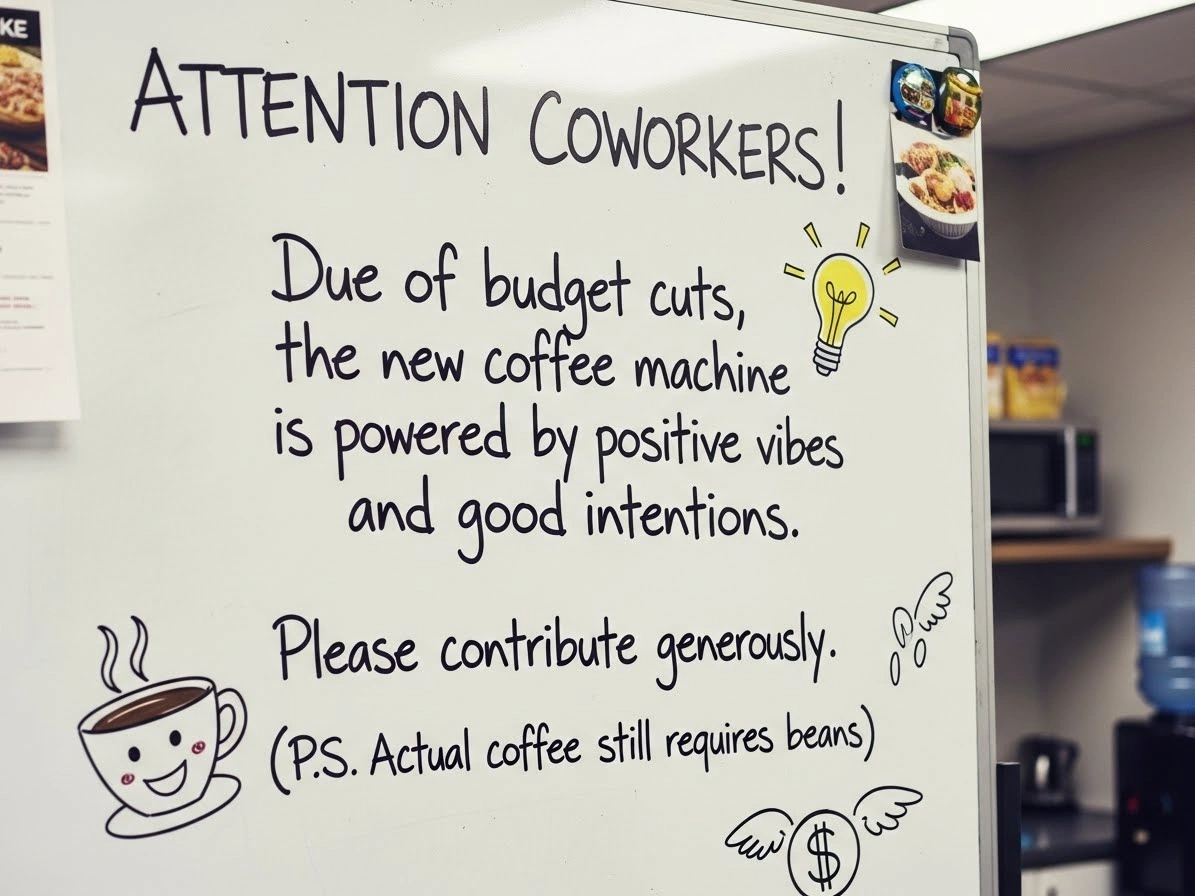 KE
ATTENTION COWORKERS!
Due of budget cuts,
the new coffee machine
is powered by positive vibes
and good intentions.
Please contribute generously.
(P.S. Actual coffee still requires beans)
$